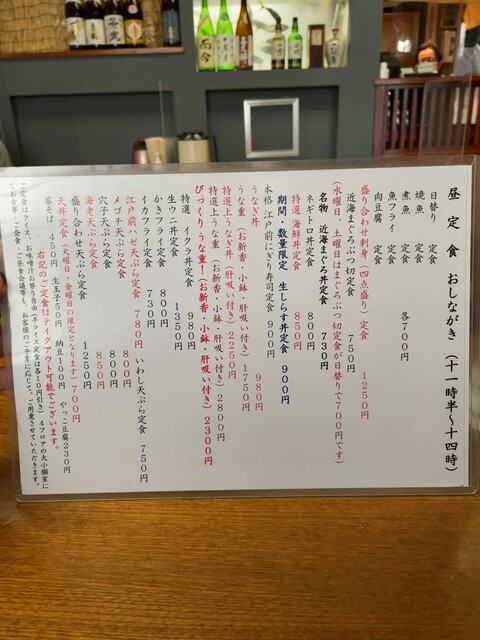 昼定食 おしながき (十一時半～十四時)
日替り 定食
焼魚 定食
煮魚 定食 各700円
魚フライ 定食
肉豆腐 定食
盛り合わせ刺身(四点盛り)定食 1250円
近海まぐろぶつ切定食 750円
(水曜日、土曜日はまぐろぶつ切定食が日替りで700円です)
名物 近海まぐろ丼定食 730円
ネギトロ丼定食 850円
特選 海鮮丼定食 850円
期間・数量限定 生しらす丼定食 900円
本格 江戸前にぎり寿司定食 900円
うなぎ丼 980円
うな重 (お新香・小鉢・肝吸い付き) 1750円
特選上うなぎ丼 (肝吸い付き) 2250円
特選上うな重 (お新香・小鉢・肝吸い付き) 2800円
びっくりうな重!(お新香・小鉢・肝吸い付き) 2300円
特選 イクラ丼定食 980円
生ウニ丼定食 1350円
かきフライ定食 800円
イカフライ定食 730円
江戸前ハゼ天ぷら定食 780円 いわし天ぷら定食 750円
メゴチ天ぷら定食 800円
穴子天ぷら定食 800円
海老天ぷら定食 850円
盛り合わせ天ぷら定食 1250円
天丼定食 (火曜日・金曜日の限定となります) 700円
茶そば 450円 生玉子50円 納豆100円 やっこ豆腐230円
右記のご定食はテイクアウト可能でございます。
ご定食はライス・お味噌汁お替り自由(半ライス定食は各10円引き)4フロアの大小個室に
てお食事し・ご会食・ご昼食会議等も、お客様のご予算に応じて、ご用意させていただきます。
而今